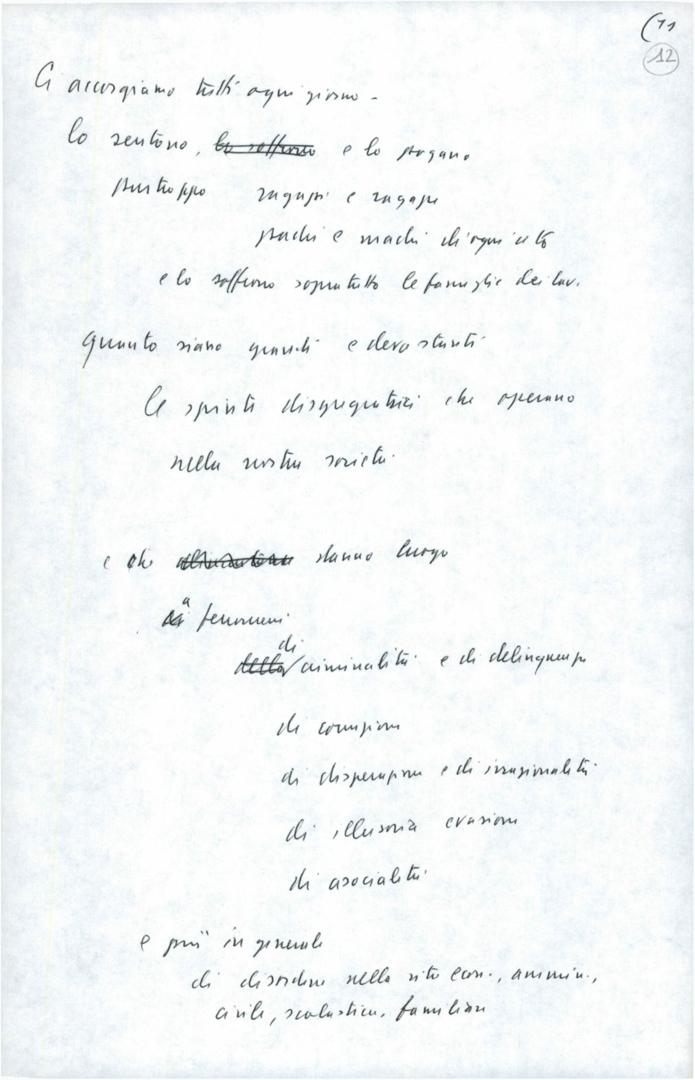 (11
12
Ci accorgiamo tutti ogni giorno -
lo sentono, lo soffrono e lo pagano
purtroppo ragazzi e ragazze
padri e madri di ogni città
e lo soffrono sopratutto le famiglie dei lav.
quanto siano grandi e devastanti
le spinte disgregatrici che operano
nella nostra società
e che danno luogo
a fenomeni
di
criminalità e di delinquenza
di corruzione
di disperazione e di irrazionalità
di illusoria evasione
di asocialità
e più in generale
di disordine nella vita econ., ammin.,
civile, scolastica, familiare